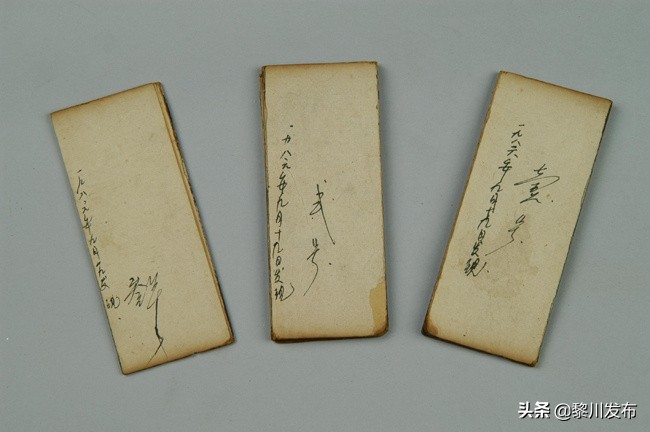 壹号
一九八六年九月十九日发现
贰号
一九八六年九月十九日发现
叁号
一九八六年九月十九日发现
头条 @黎川发布